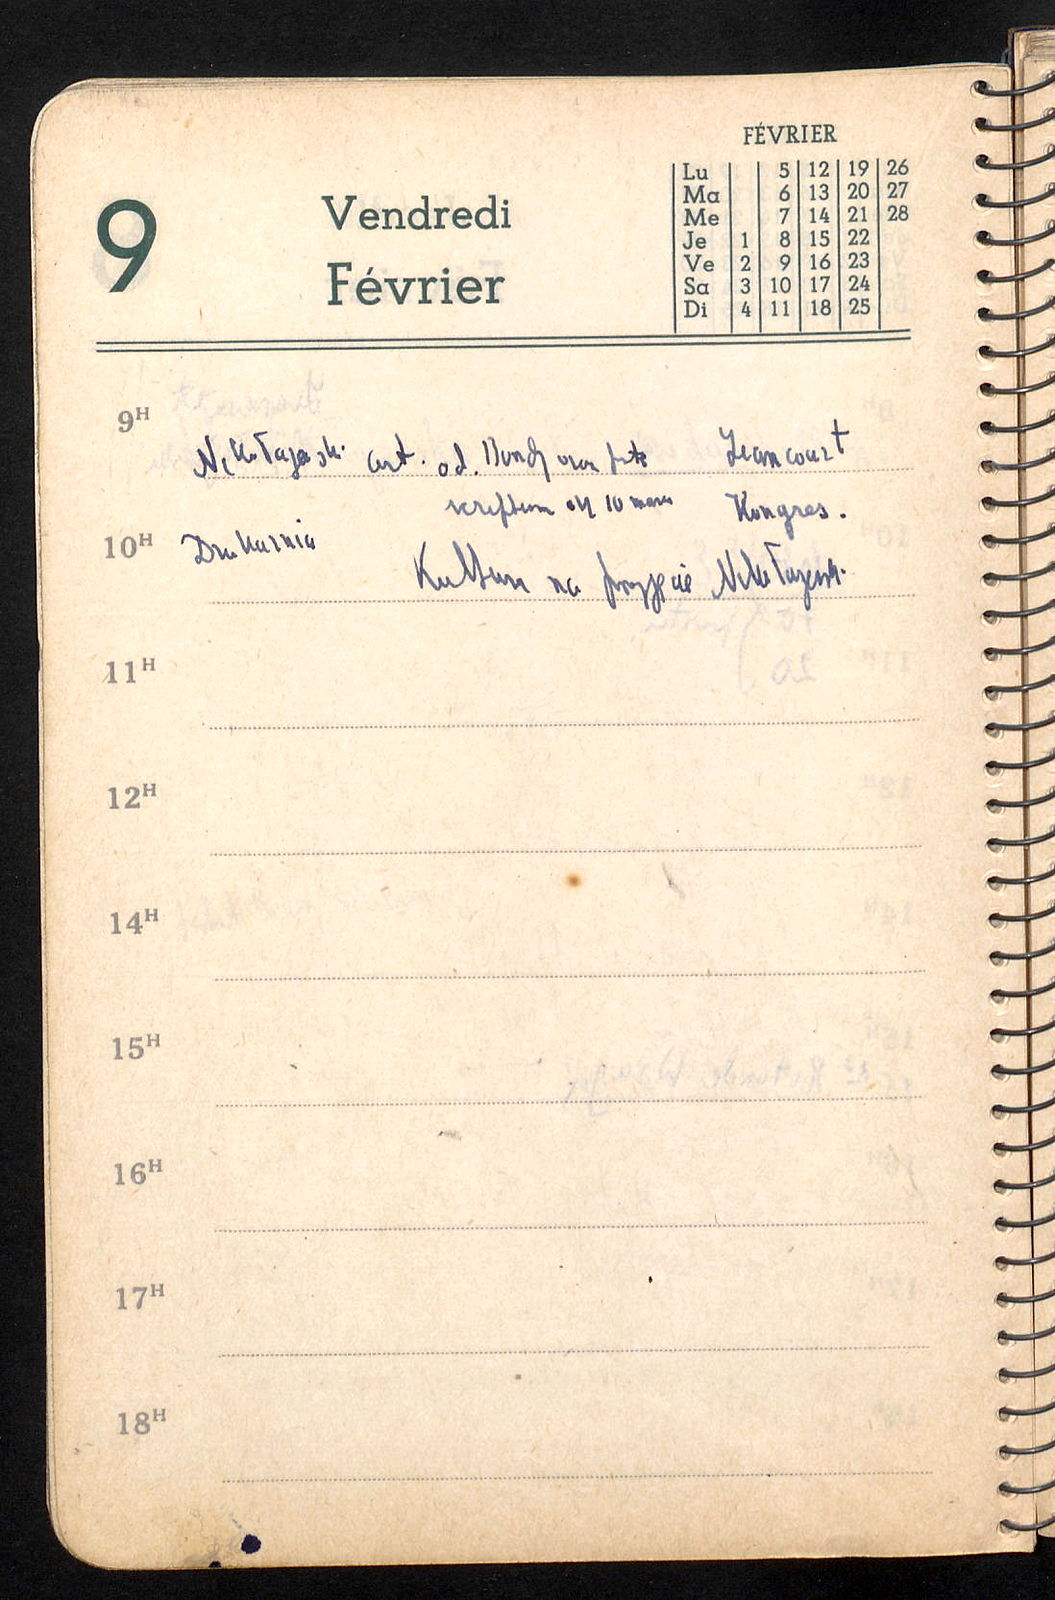 FÉVRIER
9 Vendredi
Février
Lu 5 12 19 26
Ma 6 13 20 27
Me 7 14 21 28
Je 1 8 15 22
Ve 2 9 16 23
Sa 3 10 17 24
Di 4 11 18 25
9H
art. od. Jeancourt
10 mars Kongres.
10H Drukarnia
Kultura na
11H
12H
14H
15H
16H
17H
18H